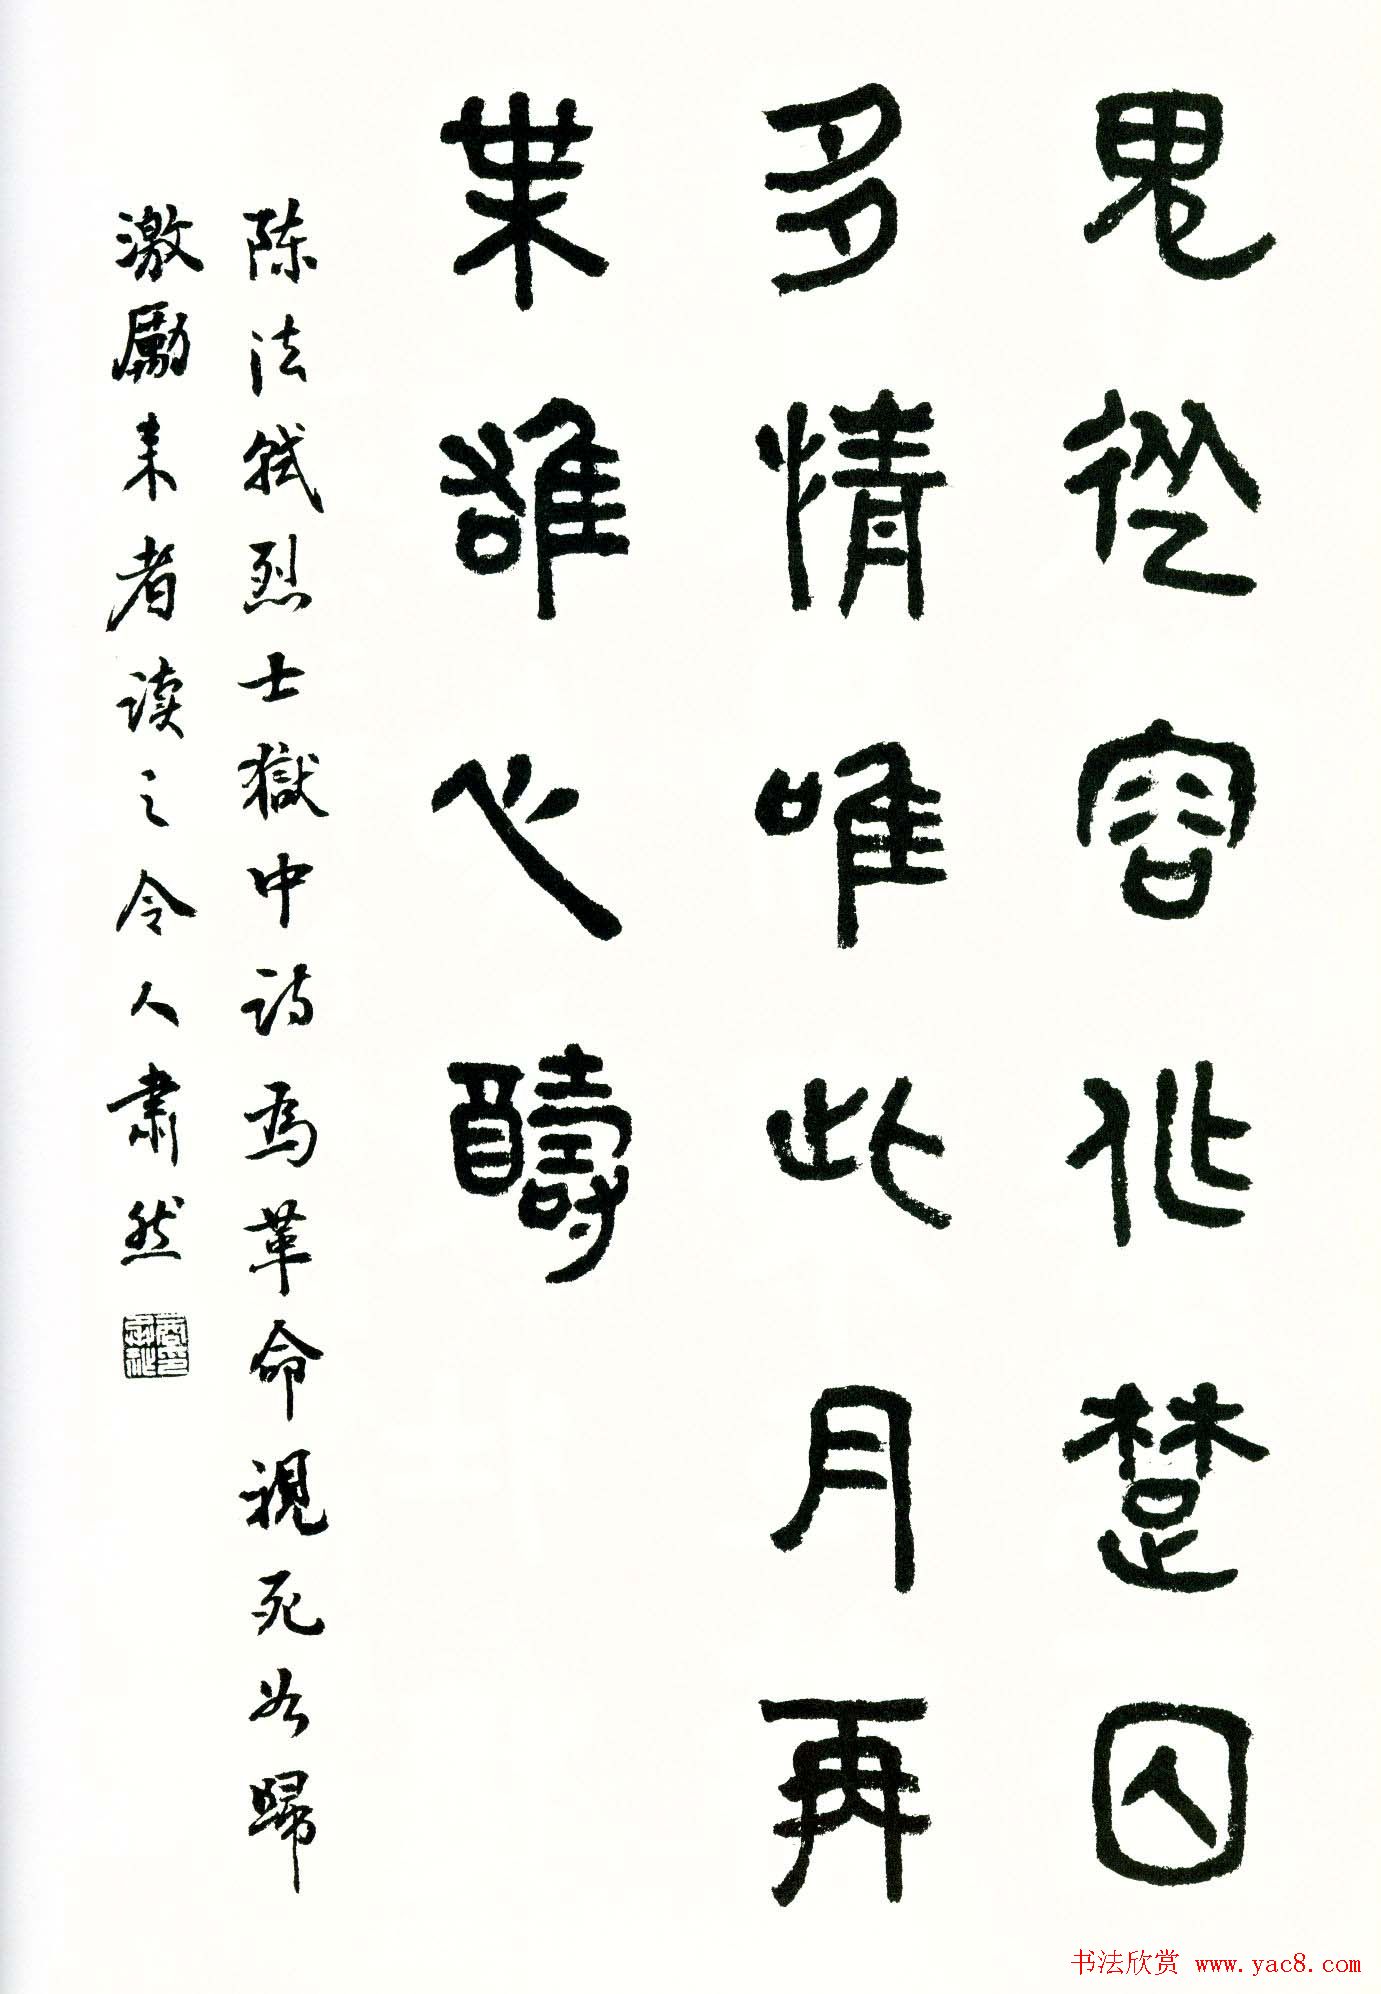 鬼從容作楚囚
多情唯此月再
業雄心醻
陈法轼烈士獄中诗為革命視死如歸
激勵来者读之令人肅然
商印承祚
书法欣赏 www.yac8.com